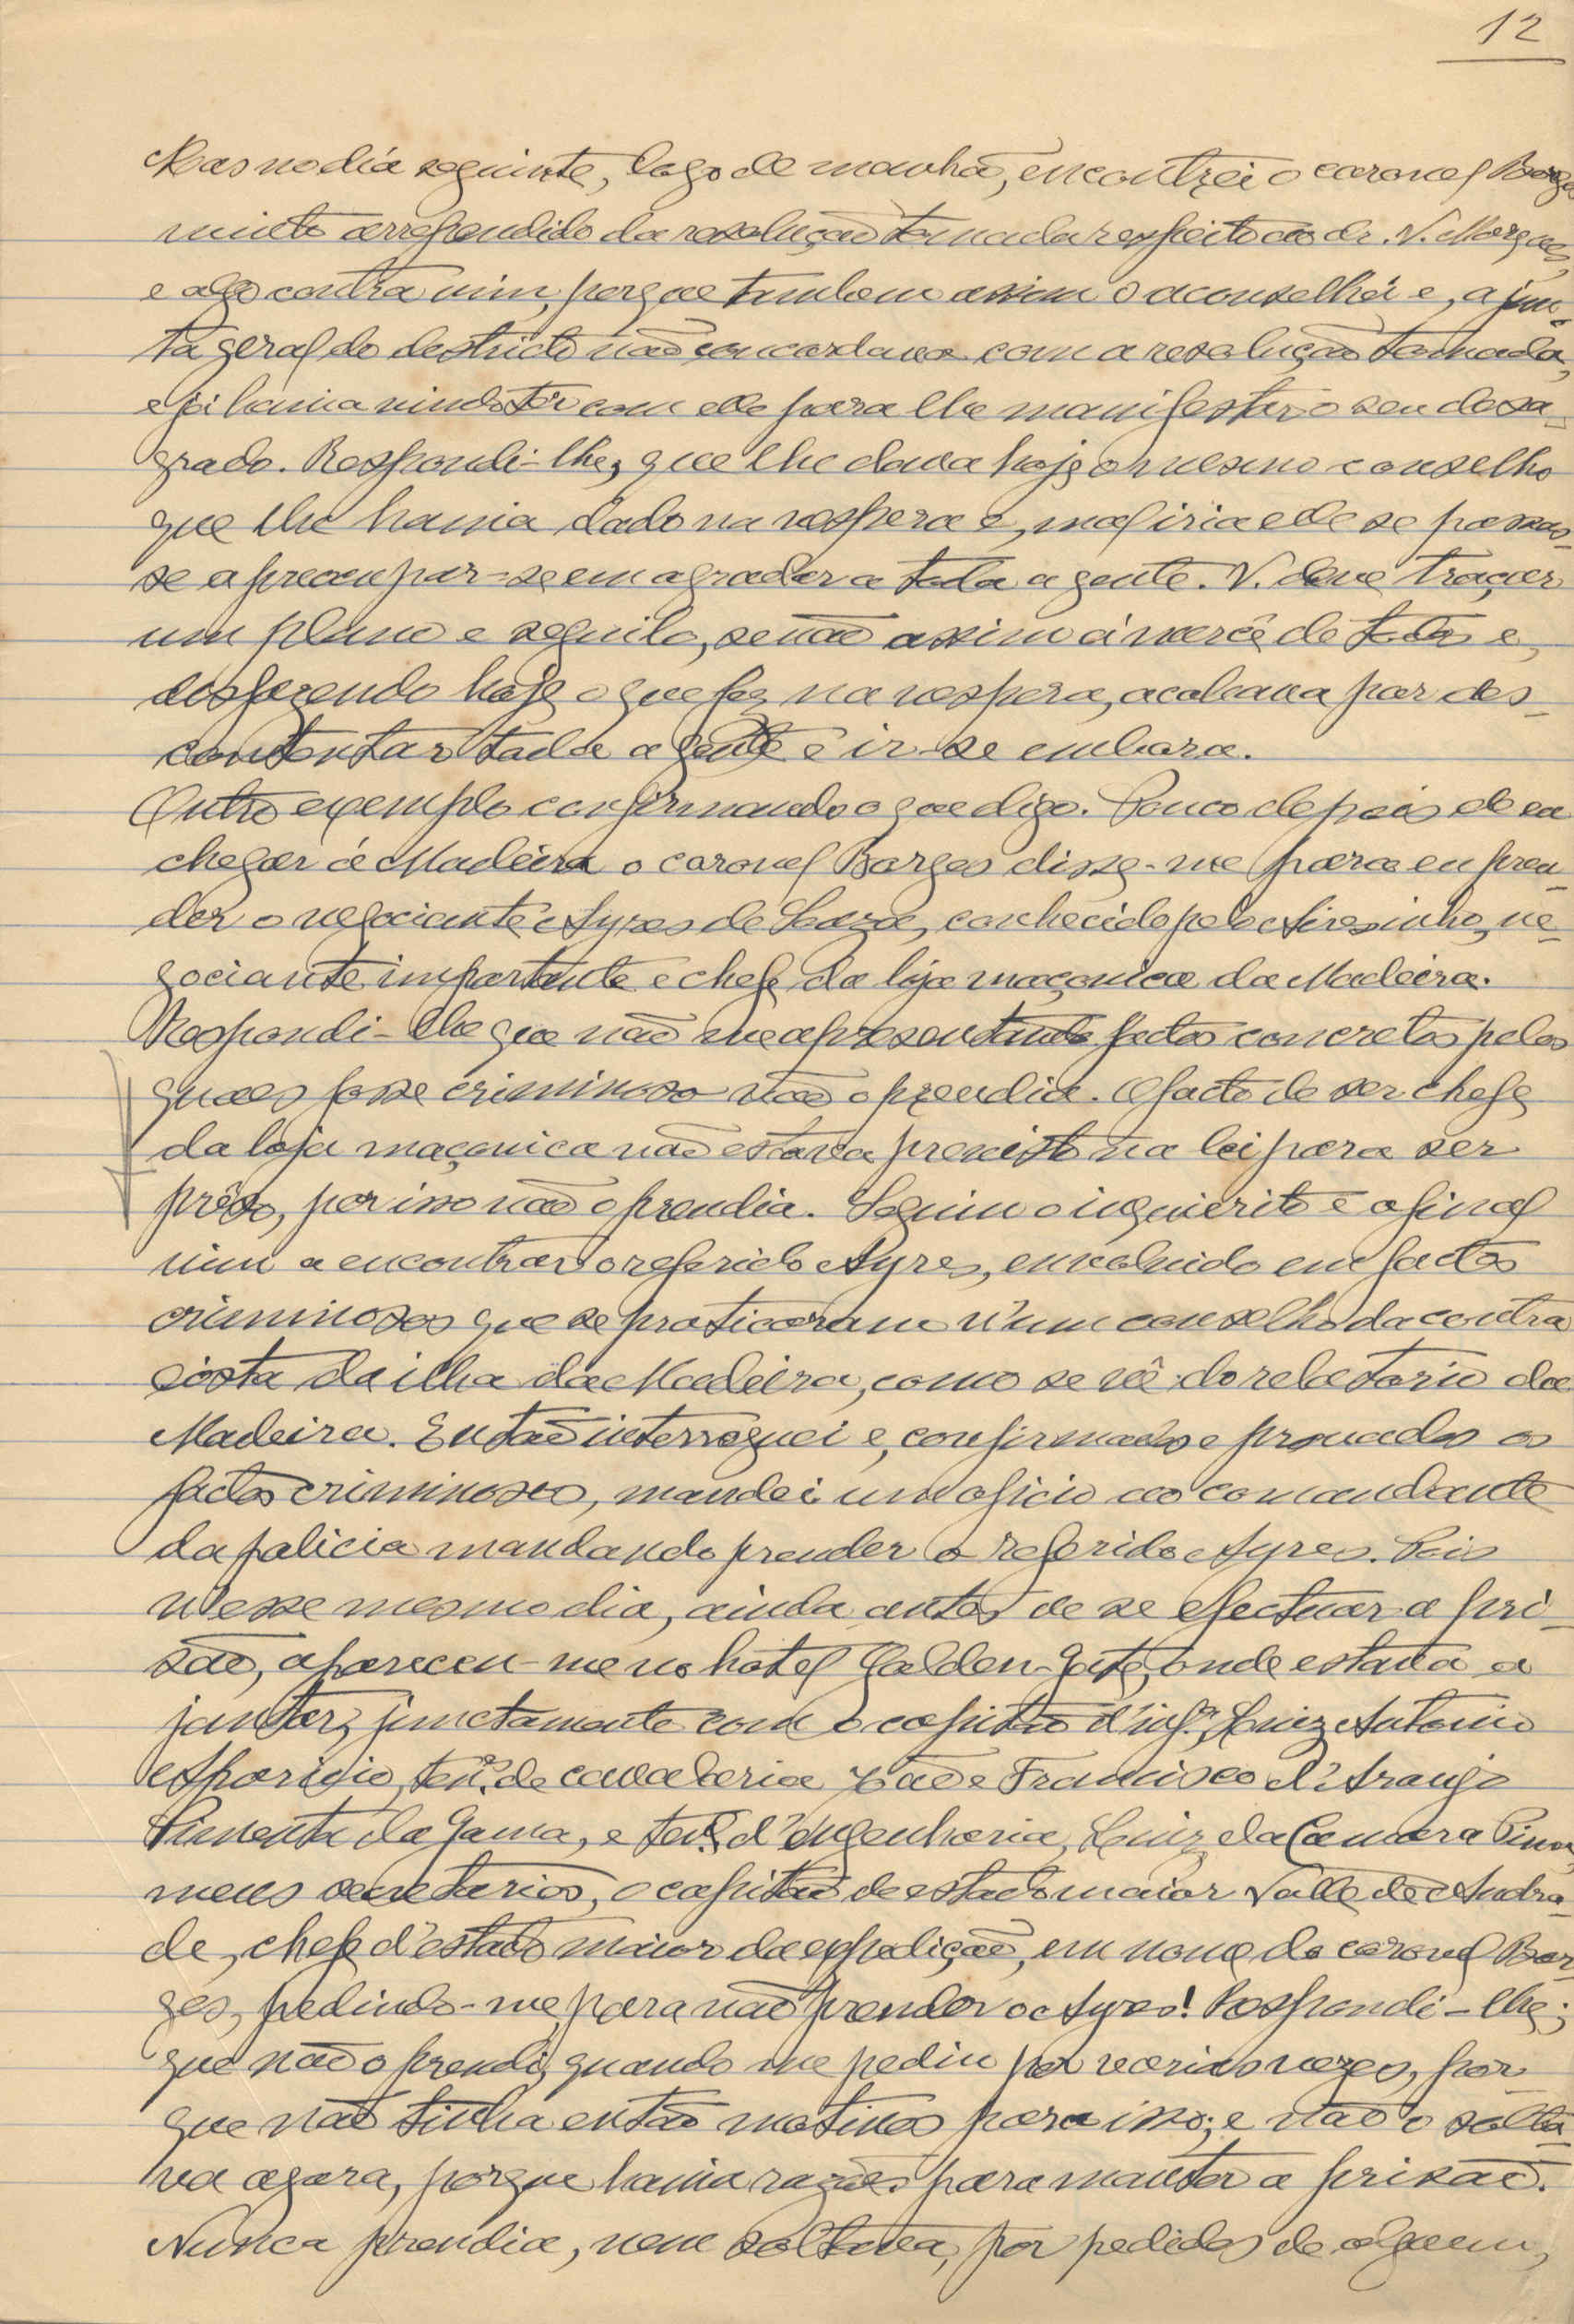 12
Mas no dia seguinte, logo de manhã, encontrei o coronel Borges
muito arrependido da resolução tomada respeito ao dr. V. Marques
e algo contra mim, porque tambem assim o aconselhei e, a jun-
ta geral do destricto não concordava com a resolução tomada,
e já havia vindo ter com elle para lhe manifestar o seu desa-
grado. Respondi-lhe, que lhe dava hoje o mesmo conselho
que lhe havia dado na vespera e, mal iria elle se passas-
se a preocupar-se em agradar a toda a gente. V. deve traçar
um plano e seguilo, senão assim á mercê de todos e,
desfazendo hoje o que fez na vespera, acabava por des-
contentar toda a gente e ir-se embora.
Outro exemplo confirmando o que digo. Pouco depois de eu
chegar á Madeira o coronel Borges disse-me para eu pren-
der o negociante Ayres de Souza, conhecido pelo Airesinho, ne-
gociante importante e chefe da loja maçonica da Madeira.
Respondi-lhe que não me apresentando factos concretos pelos
quaes fosse criminoso não o prendia. O facto de ser chefe
da loja maçonica não estava previsto na lei para ser
prêso, por isso não o prendia. Seguiu o inquerito e afinal
vim a encontrar o referido Ayres, envolvido em factos
criminosos que se praticaram n'um conselho da contra
costa da ilha da Madeira, como se vê do relatorio da
Madeira. Então interroguei e, confirmados e provados os
factos criminosos, mandei um oficio ao comandante
da policia mandando prender o referido Ayres. Pois
n'esse mesmo dia, ainda antes de se efectuar a pri-
são, apareceu-me no hotel Golden-Gate, onde estava a
jantar, junctamente com o capitão d'inf.ª, Luiz Antonio
Aparicio, ten.te de cavalaria João Francisco d'Araujo
Pimenta da Gama, e ten.te d'engenharia, Luiz da Camara Pina,
meus secretarios, o capitão de estado maior Valle de Andra-
de, chefe d'estado maior da expedição, em nome do coronel Bor-
ges, pedindo-me para não prender o Ayres! Respondi-lhe;
que não o prendi, quando me pediu por varias vezes, por
que não tinha então motivos para isso; e não o solta-
va agora, porque havia razões para manter a prisão.
Nunca prendia, nem soltava, por pedidos de alguem,